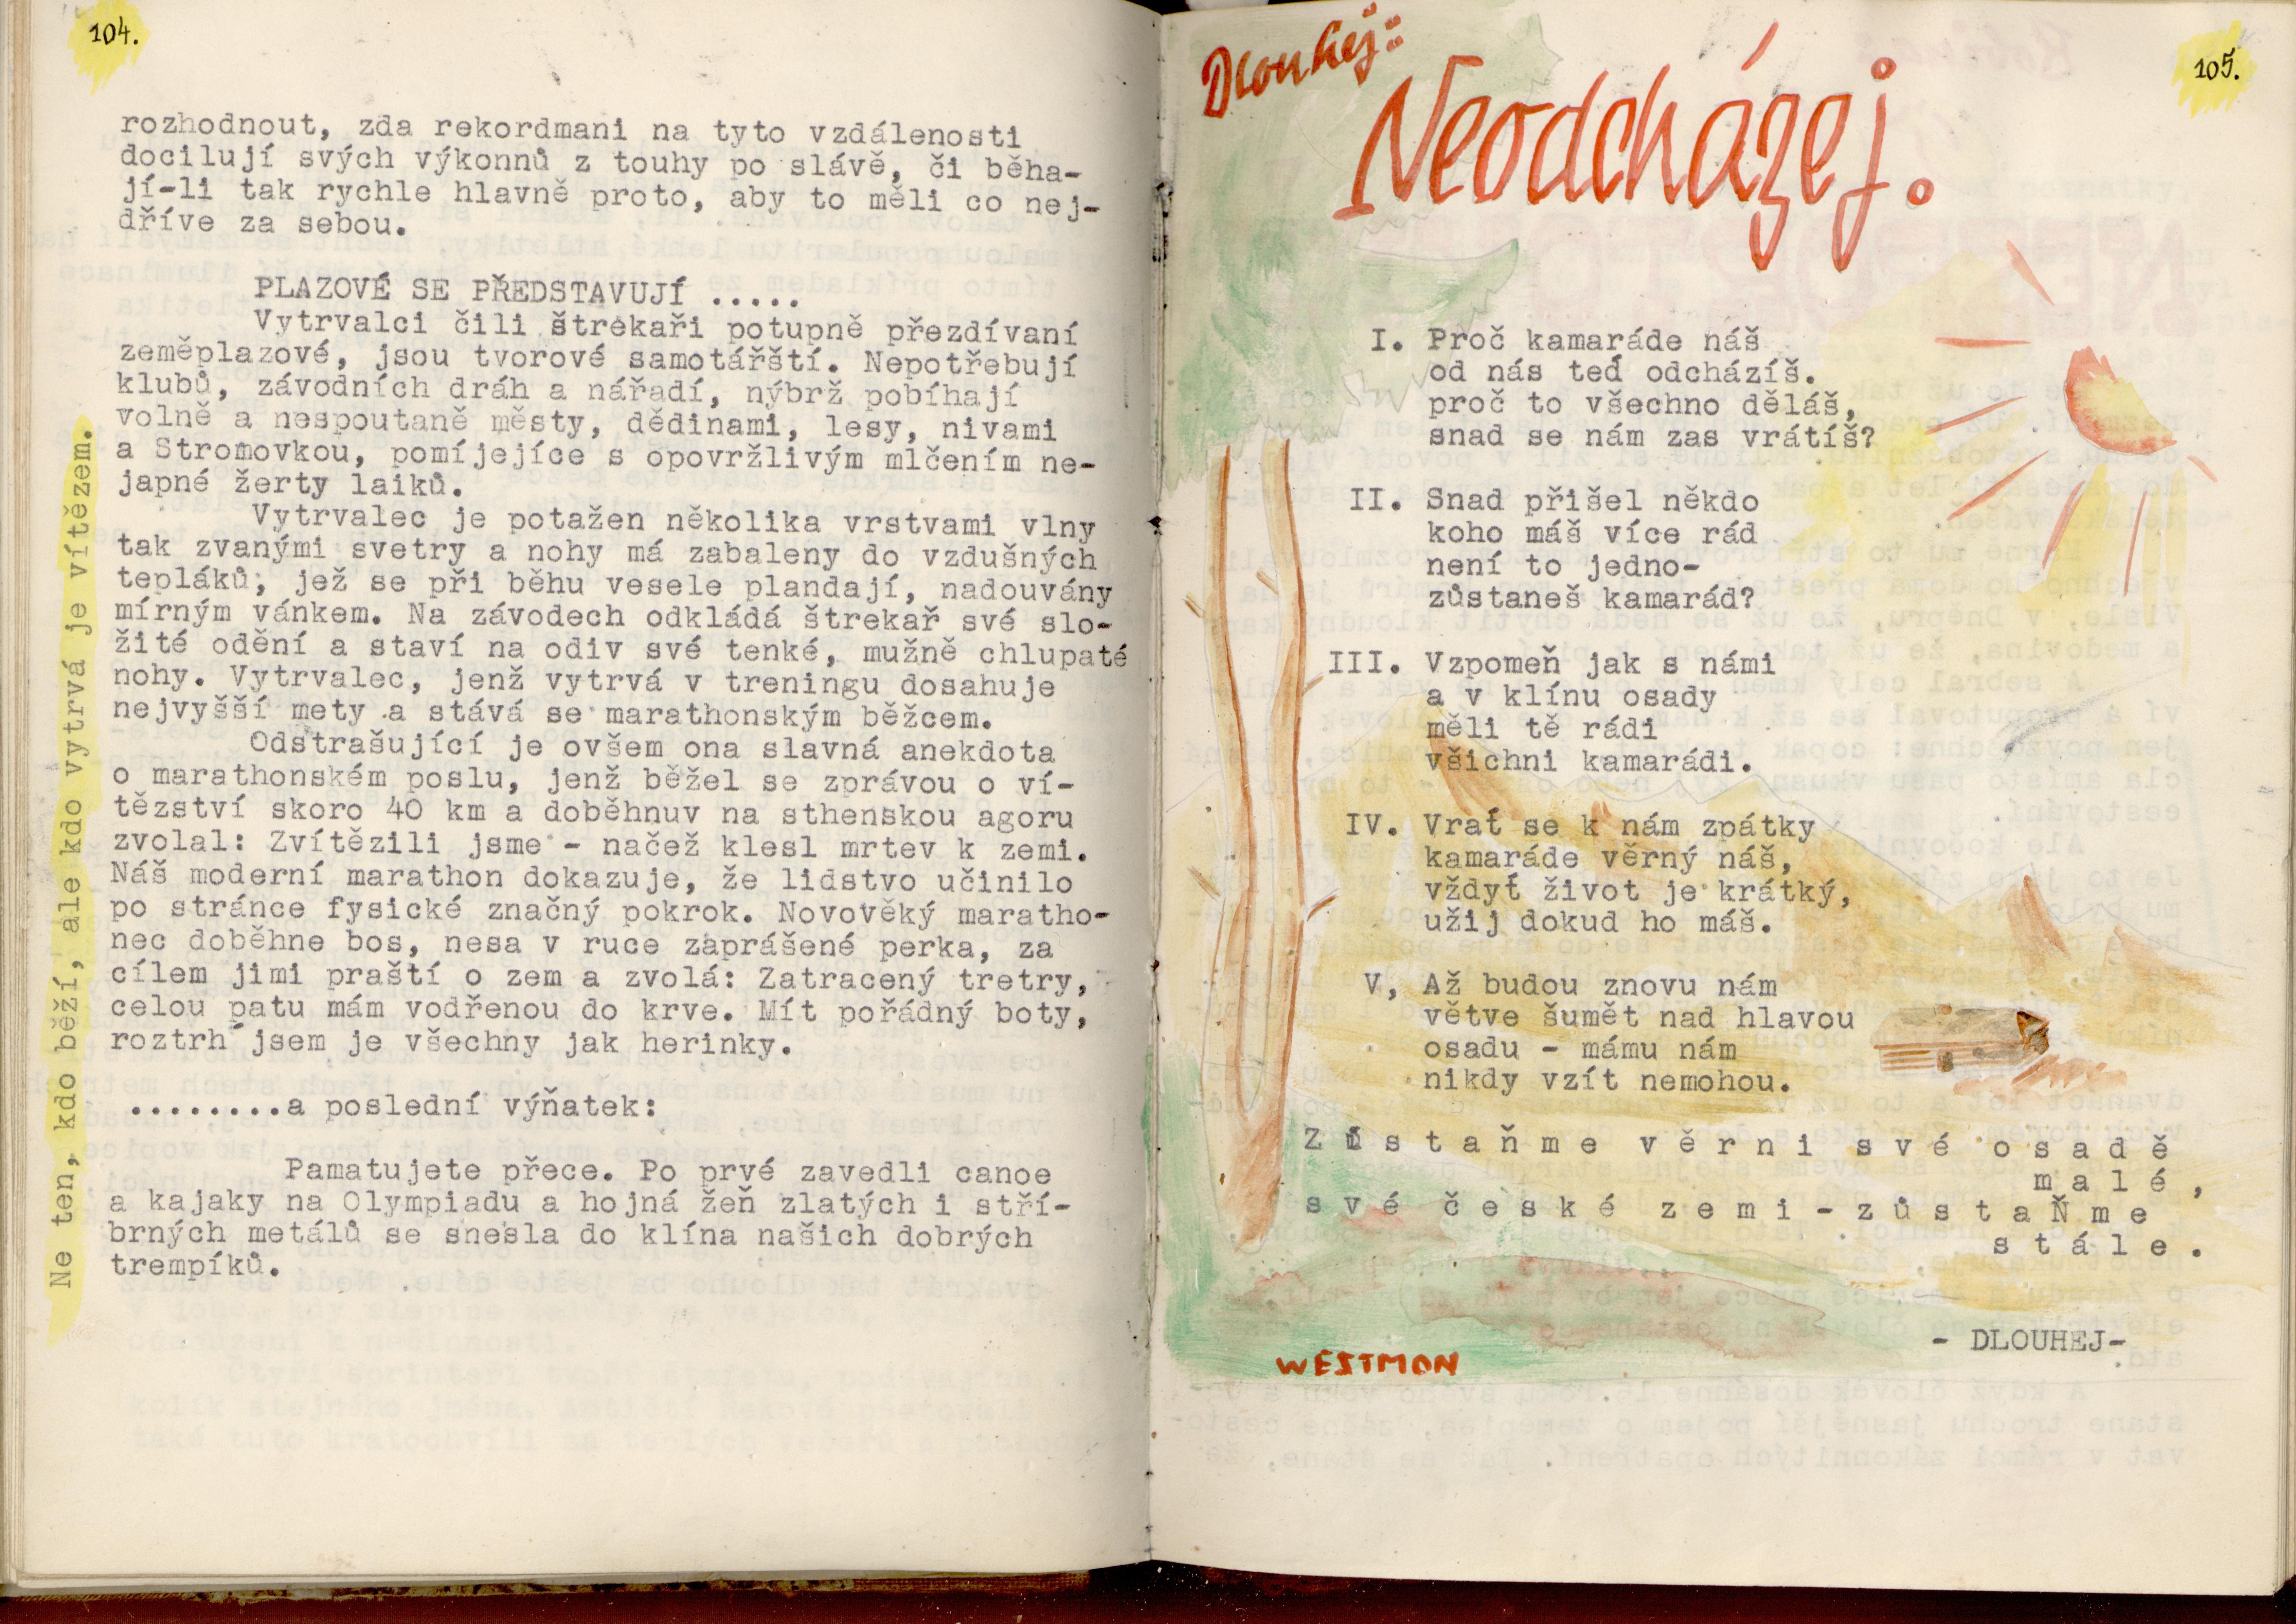 104.
rozhodnout, zda rekordmani na tyto vzdálenosti
docilují svých výkonnů z touhy po slávě, či běha-
jí-li tak rychle hlavně proto, aby to měli co nej-
dříve za sebou.
PLAZOVÉ SE PŘEDSTAVUJÍ .....
Vytrvalci čili štrekaři potupně přezdívaní
zeměplazové, jsou tvorové samotářští. Nepotřebují
klubů, závodních drah a nářadí, nýbrž pobíhají
volně a nespoutaně městy, dědinami, lesy, nivami
a Stromovkou, pomíjejíce s opovržlivým mlčením ne-
japné žerty laiků.
Vytrvalec je potažen několika vrstvami vlny
tak zvanými svetry a nohy má zabaleny do vzdušných
tepláků, jež se při běhu vesele plandají, nadouvány
mírným vánkem. Na závodech odkládá štrekař své slo-
žité odění a staví na odiv své tenké, mužně chlupaté
nohy. Vytrvalec, jenž vytrvá v treningu dosahuje
nejvyšší mety a stává se marathonským běžcem.
Odstrašující je ovšem ona slavná anekdota
o marathonském poslu, jenž běžel se zprávou o ví-
tězství skoro 40 km a doběhnuv na sthenskou agoru
zvolal: Zvítězili jsme - načež klesl mrtev k zemi.
Náš moderní marathon dokazuje, že lidstvo učinilo
po stránce fysické značný pokrok. Novověký maratho-
nec doběhne bos, nesa v ruce zaprášené perka, za
cílem jimi praští o zem a zvolá: Zatracený tretry,
celou patu mám vodřenou do krve. Mít pořádný boty,
roztrh jsem je všechny jak herinky.
.........a poslední výňatek:
Pamatujete přece. Po prvé zavedli canoe
a kajaky na Olympiadu a hojná žeň zlatých i stří-
brných metálů se snesla do klína našich dobrých
trempíků.
Ne ten, kdo běží, ale kdo vytrvá je vítězem.
105.
Dlouhej:
Neodcházej.
I. Proč kamaráde náš
od nás teď odcházíš.
proč to všechno děláš,
snad se nám zas vrátíš?
II. Snad přišel někdo
koho máš více rád
není to jedno-
zůstaneš kamarád?
III. Vzpomeň jak s námi
a v klínu osady
měli tě rádi
všichni kamarádi.
IV. Vrať se k nám zpátky
kamaráde věrný náš,
vždyť život je krátký,
užij dokud ho máš.
V, Až budou znovu nám
větve šumět nad hlavou
osadu - mámu nám
nikdy vzít nemohou.
Zůstaňme věrni své osadě
malé,
své české zemi-zůstaŇme
stále.
- DLOUHEJ-
WESTMON